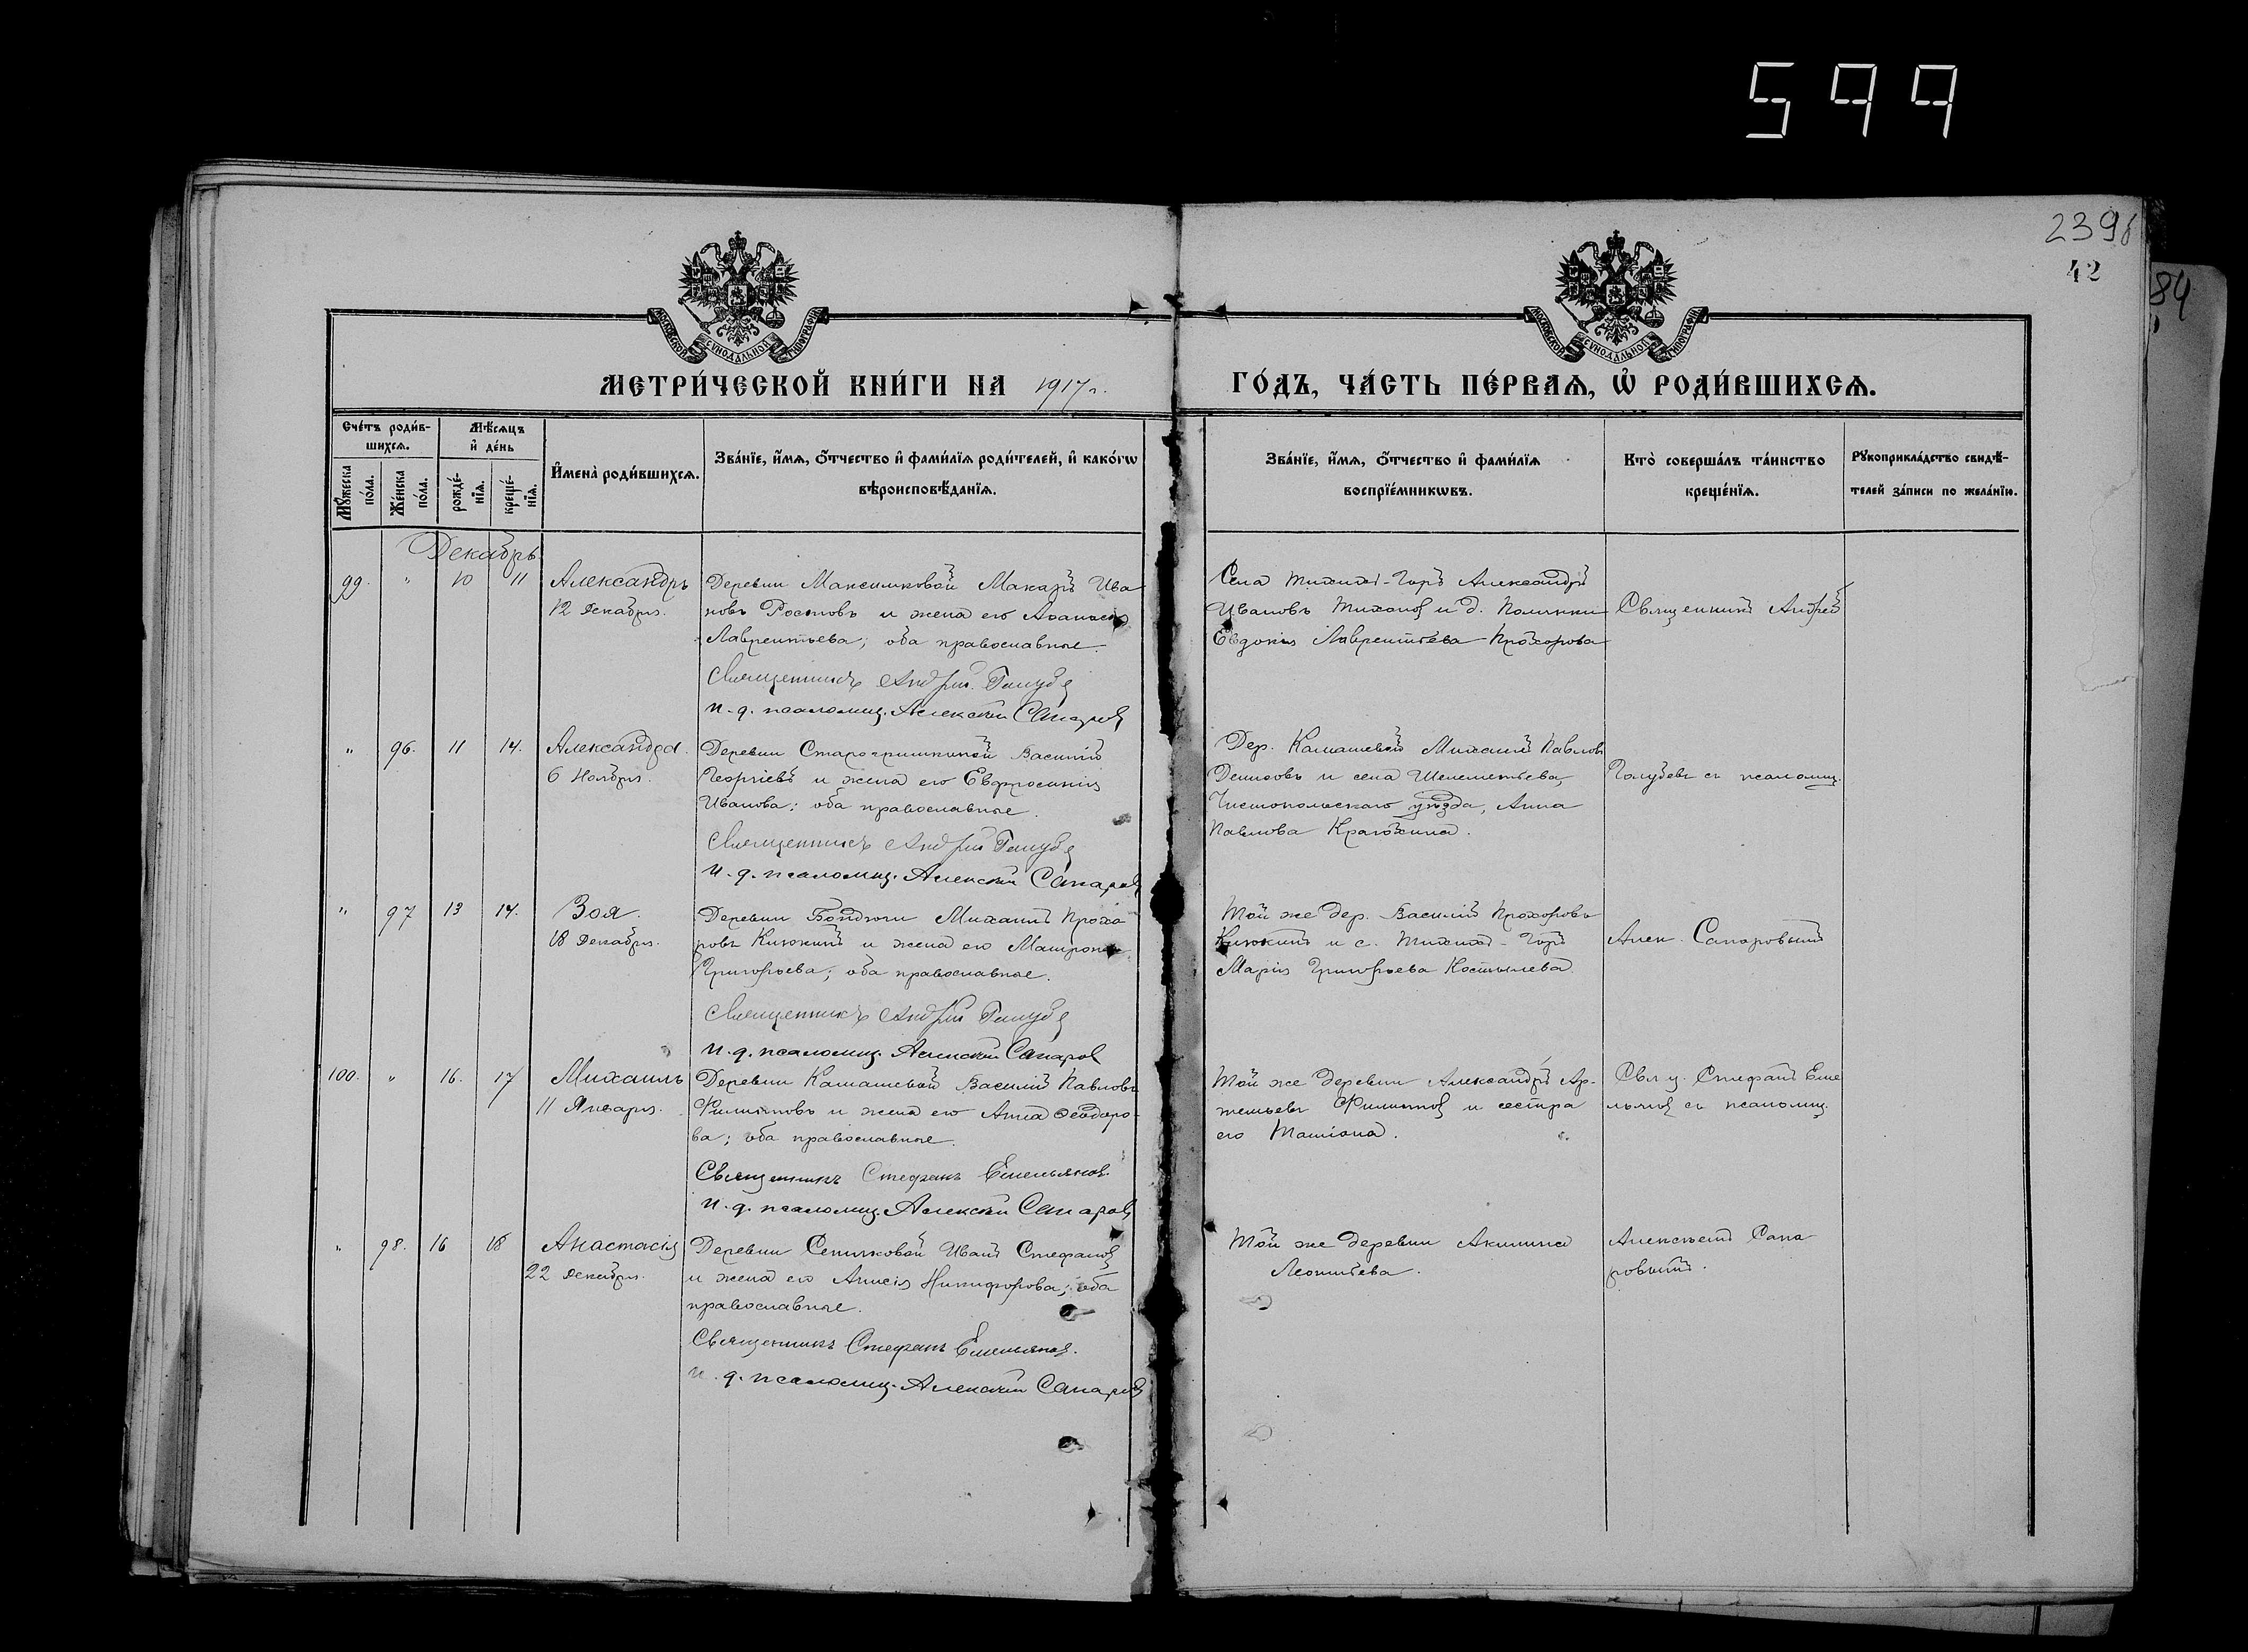 599
2396
42
84
МОСКОВСКОЙ СУНОДАЛЬНОЙ ТИПОГРАФІИ
МОСКОВСКОЙ СУНОДАЛЬНОЙ ТИПОГРАФІИ
МЕТРИ́ЧЕСКОЙ КНИ́ГИ НА 1917 г.
ГО́ДЪ, ЧА́СТЬ ПЕ́РВАѦ, Ѽ РОДИ́ВШИХСѦ.
Сче́тъ роди́в-
шихсѧ.
Мꙋ́жеска
по́ла.
Же́нска
по́ла.
Мѣ́сѧцъ
и҆ де́нь
рожде́-
нїѧ.
креще́-
нїѧ.
И҆мена̀ роди́вшихсѧ.
Зва́нїе, и҆́мѧ, ѻ҆́тчество и҆ фами́лїѧ роди́телей, и҆ како́гѡ
вѣроисповѣ́данїѧ.
Зва́нїе, и҆́мѧ, ѻ҆́тчество и҆ фами́лїѧ
воспрїе́мникѡвъ.
Кто̀ соверша́лъ та́инство
креще́нїѧ.
Рꙋкоприкла́дство свидѣ́-
телей за́писи по жела́нїю.
Декабрь.
99. " 10 11 Александръ
12 Декабря.
Деревни Максимковой Макаръ Ива
новъ Ростовъ и жена его Аѳанасія
Лаврентьева; оба православные.
Священникъ Андрей Голубе
и. д. псаломщ. Алексей Сапаров
Села Тихихъ-Горъ Александръ
Ивановъ Тихонов и д. Полянки
Евдокія Лаврентьева Прохорова
Священникъ Андрей
" 96. 11 14. Александра.
6 Ноября.
Деревни Старогришкиной Василій
Георгіевъ и жена его Евфросинія
Иванова; оба православные.
Священникъ Андрей Голубе
и. д. псаломщ. Алексей Сапаров
Дер. Камашевой Михаилъ Павловъ
Денисовъ и села Шереметьева,
Чистопольскаго уѣзда, Анна
Павлова
Голубевъ съ псаломщ.
" 97 13 14. Зоя.
18 Декабря.
Деревни Бондюги Михаилъ Прохо
ровъ Кинжинъ и жена его Матрона
Григорьева; оба православные.
Священникъ Андрей Голубе
и. д. псаломщ. Алексей Сапаров
Той же дер. Василій Прохоровъ
и с. Тихихъ-Горъ
Марія Григорьева Костылева.
Алек. Сапаровымъ
100. " 16. 17 Михаилъ
11 Января.
Деревни Камашевой Василій Павловъ
Филипповъ и жена его Анна Ѳеодоро-
ва; оба православные.
Священникъ Стефанъ Емельянов.
и. д. псаломщ. Алексей Сапаров
Той же деревни Александръ Ар-
темьевъ Филиппов и сестра
его Татіана.
Свящ. Стефанъ Еме
льянов съ псаломщ.
" 98. 16 18 Анастасія
22 Декабря.
Деревни Сетяковой Иванъ Стефанов
и жена его Анисія Никифорова; оба
православные.
Священникъ Стефанъ Емельянов.
и. д. псаломщ. Алексей Сапаров
Той же деревни Акилина
Леонтьева.
Алексеемъ Сапа
ровымъ.